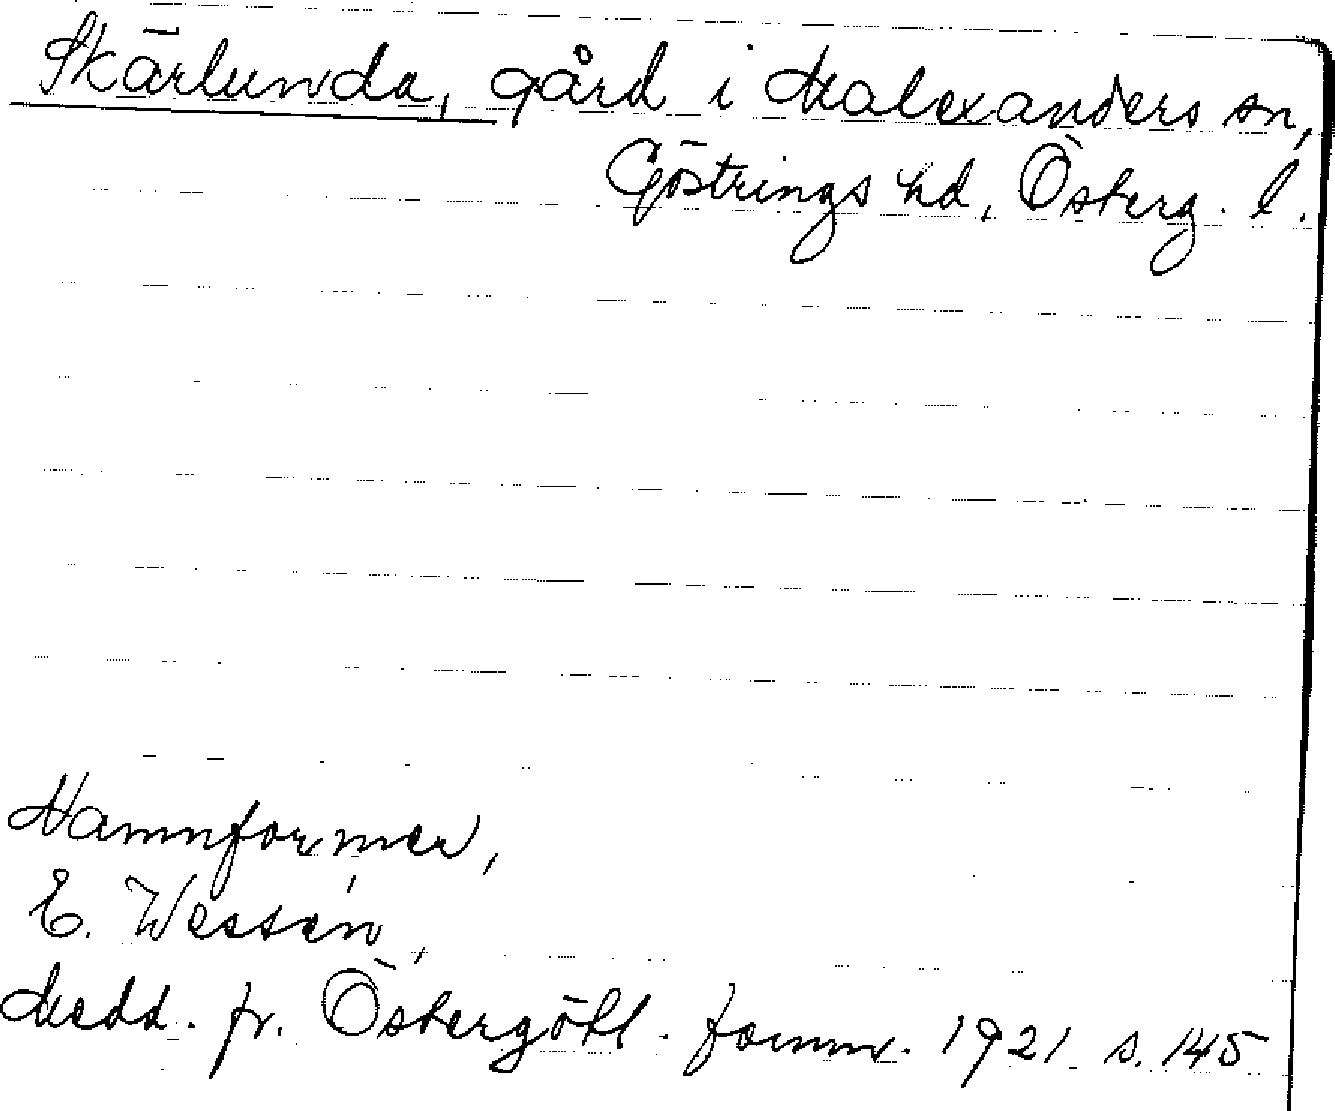 Skärlunda, gård i Malexanders sn,
Göstrings hd, Österg. l.
Namnformer,
E. Wessén,
Medd. fr. Östergötl. fornm. 1921 s. 145